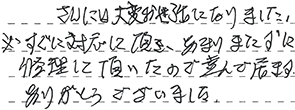 さんには大変お世話になりました。
※すぐに対応して頂き、あきらめずに
修理して頂いたので喜んで居ます
ありがとうございました。